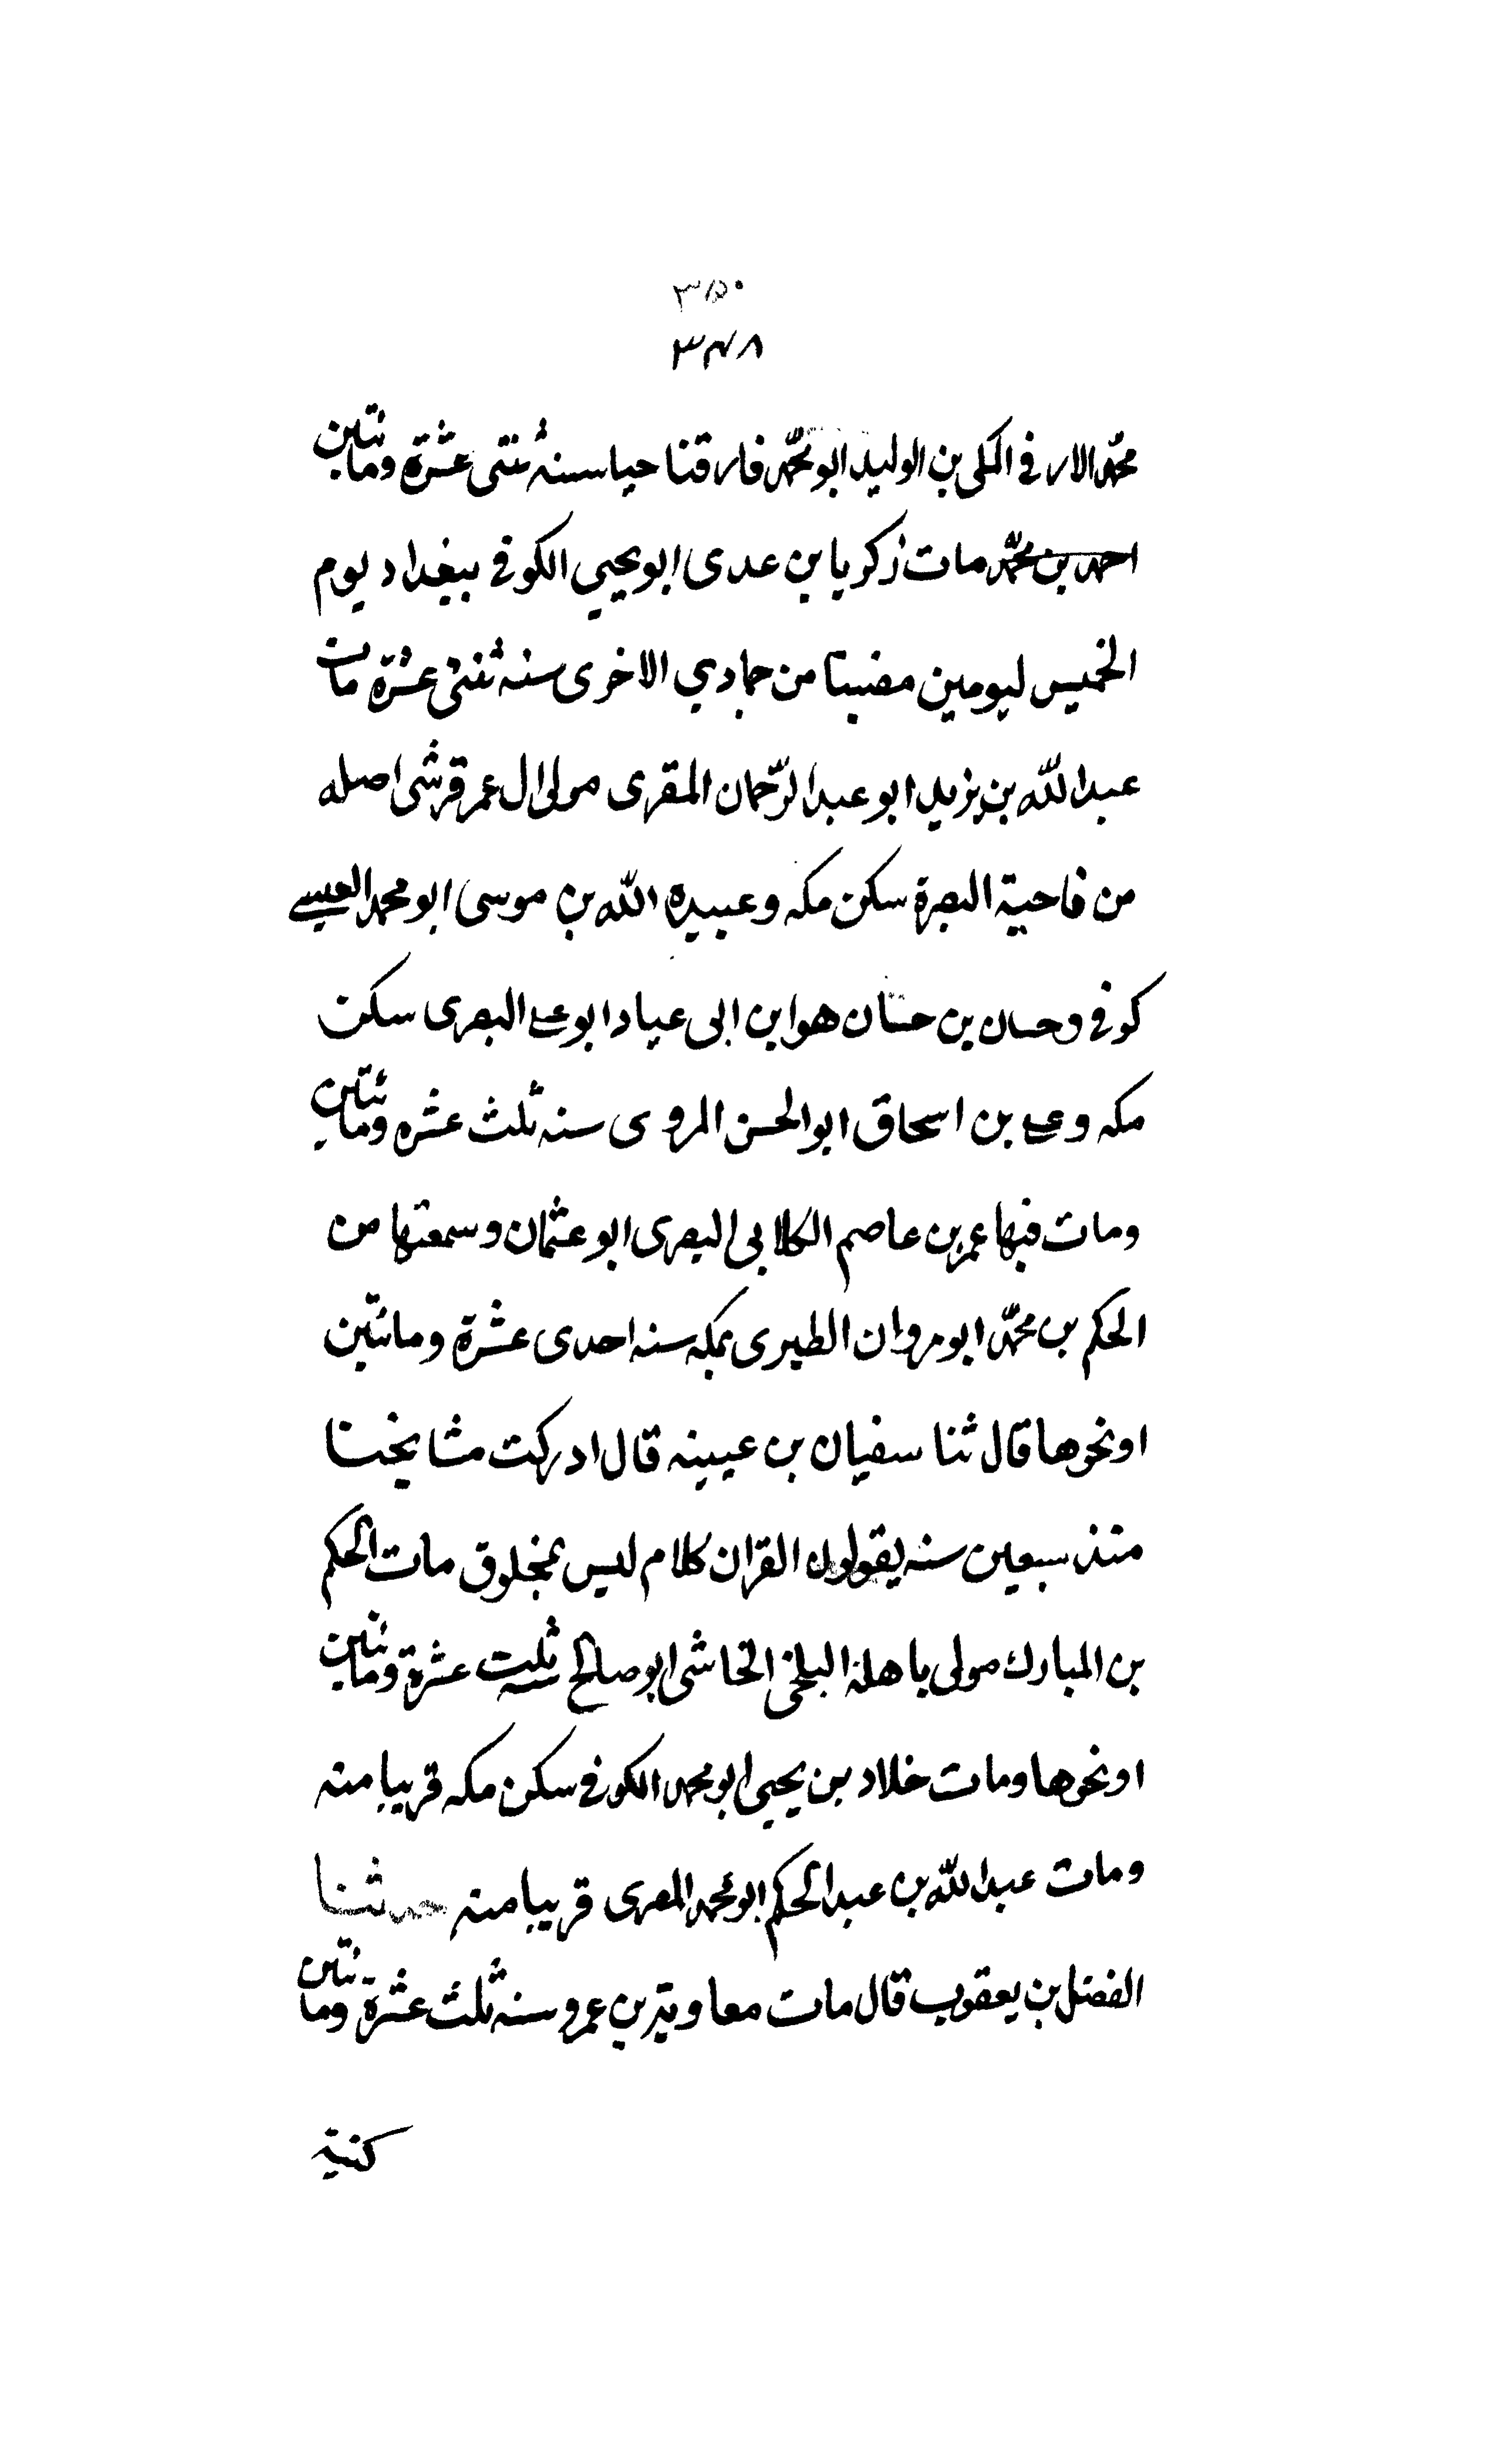 ٣٥٠
٣٤٨
محمد الارفى المكى بن الوليد ابو محمد فارقنا حيا سنة ثنتى عشرة ومائتين
احمد بن محمد مات زكريا بن عدى ابو يحيي الكوفى ببغداد يوم
الخميس ليومين مضيتا من جمادي الاخرى سنه ثنتى عشرة مات
عبد الله بن يزيد ابو عبد الرحمان المقرى مولى ال عمر قرشى اصله
من فاحية البصرة سكن مكه وعبيده الله بن موسى ابو محمد العبسے
كوفى وحسان بن حسان هو ابن ابى عباد ابو علے البصرى سكن
مكه وعلے بن اسحاق ابو الحسن المروى سنه ثلث عشره ومائتين
ومات فيها عمر بن عاصم الكلابى البصرى ابو عثمان وسمعتها من
الحكم بن محمد ابو مروان الطبرى بمكه سنه احدى عشرة ومائتين
او نحوها قال ثنا سفيان بن عيينه قال ادركت مشايخنا
منذ سبعين سنه يقولون القران كلام ليس بمخلوق مات الحكم
بن المبارك مولى باهلة البلخى الخاشى ابو صالح سنه ثلث عشرة ومائتين
او نحوها ومات خلاد بن يحيى ابو محمد الكوفى سكن مكه قريبا منه
ومات عبد الله بن عبد الحكم ابو محمد المصرى قريبا منه حدثنا
الفضل بن يعقوب قال مات معاوية بن عمرو سنه ثلث عشرة ومائتين
كنيته